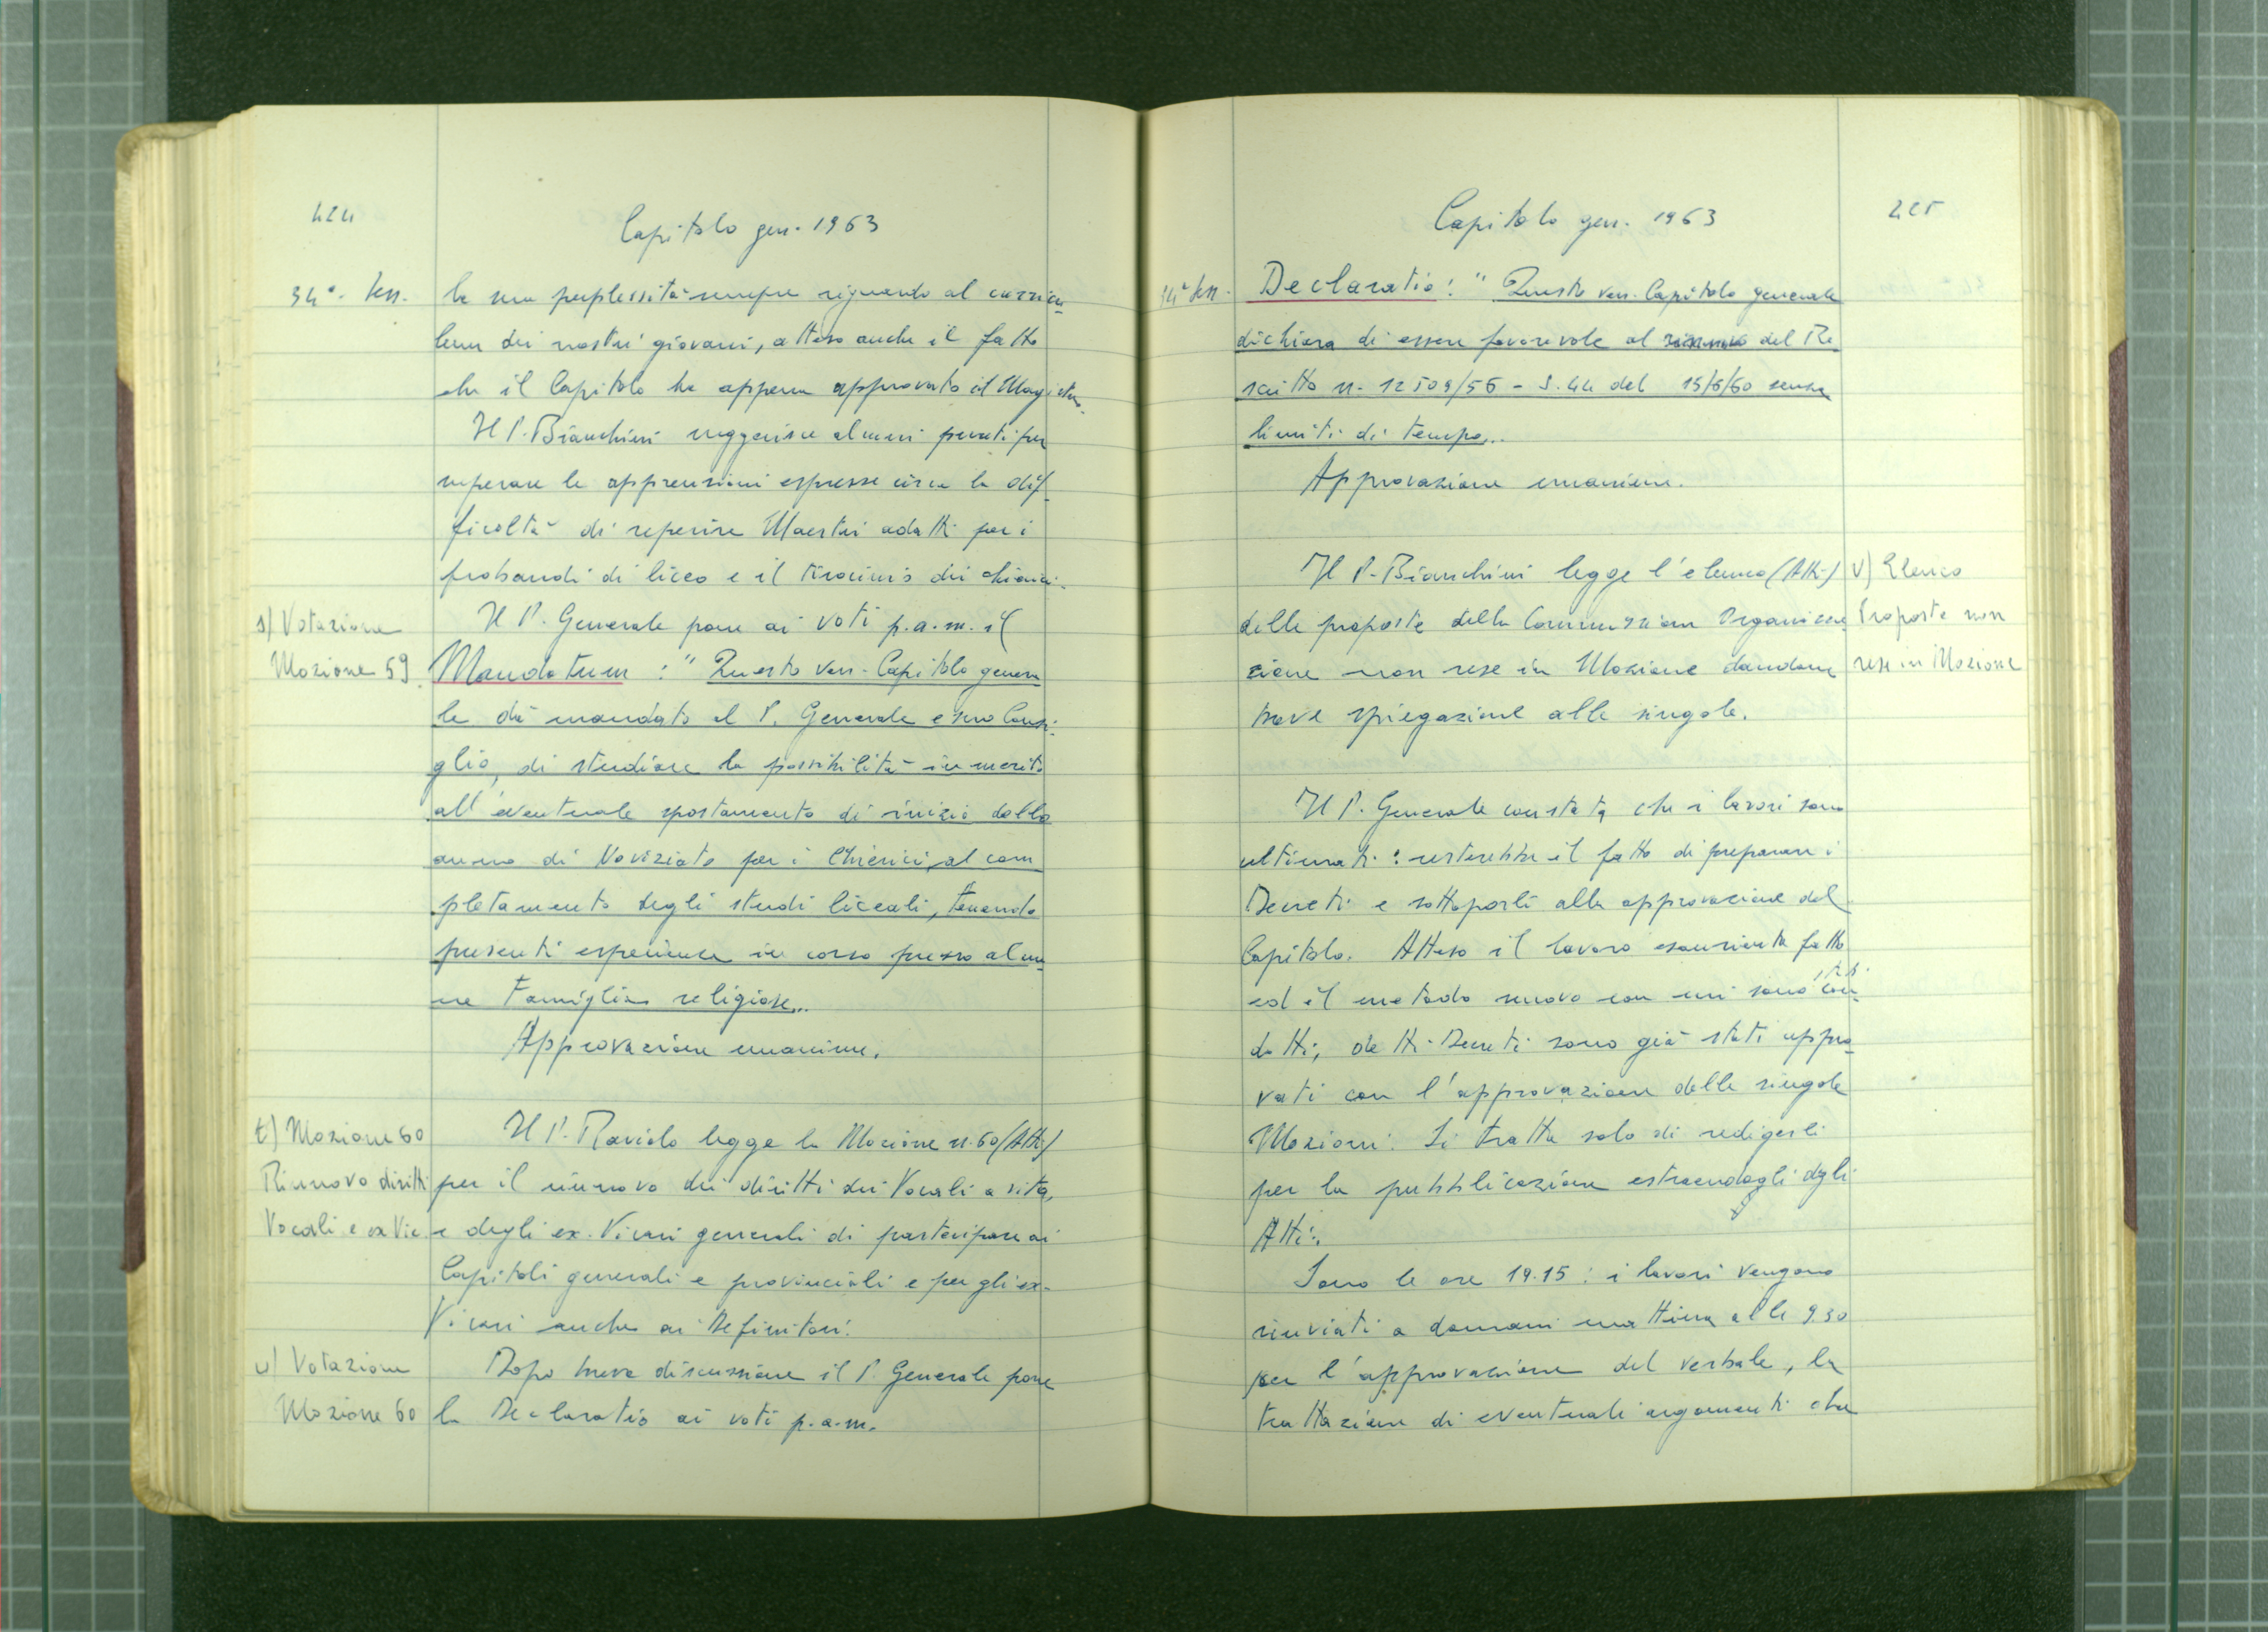 424
Capitolo gen. 1963
34ª. Sess.
la sua perplessità sempre riguardo al curricu
lum dei nostri giovani, atteso anche il fatto
che il Capitolo ha appena approvato il Magister.
Il P. Bianchini suggerisce alcuni punti per
superare le apprensioni espresse circa la dif
ficoltà di reperire Maestri adatti per i
probandi di liceo e il tirocinio dei chierici.
s) Votazione
Mozione 59
Il P. Generale pone ai voti p.a.m. il
Mandatum : " Questo ven. Capitolo genera
le dà mandato al P. Generale e suo Consi-
glio, di studiare la possibilità in merito
all'eventuale spostamento di inizio dello
anno di Noviziato per i Chierici, al com
pletamento degli studi liceali, tenendo
presenti esperienze in corso presso alcu
ne Famiglie religiose„.
Approvazione unanime.
t) Mozione 60
Rinnovo diritti
Vocali e ex Vic
Il P. Raviolo legge la Mozione n. 60 (Atti)
per il rinnovo dei diritti dei Vocali a vita,
e degli ex. Vicari generali di partecipare ai
Capitoli generali e provinciali e per gli ex-
Vicari anche ai Definitori.
u) Votazione
Mozione 60
Dopo breve discussione il P. Generale pone
la Declaratio ai voti p.a.m.
225
Capitolo gen. 1963
34ª Sess.
Declaratio : " Questo ven. Capitolo generale
dichiara di essere favorevole al rinnovo del Re
scritto n. 12509/56 - S.44 del 15/6/60 senza
limiti di tempo„.
Approvazione unanime.
v) Elenco
Proposte non
rese in Mozione
Il P. Bianchini legge l'elenco (Atti)
delle proposte della Commissione Organizza
zione non rese in Mozione dandone
breve spiegazione alle singole.
Il P. Generale constata che i lavori sono
ultimati : resterebbe il fatto di preparare i
Decreti e sottoporli alla approvazione del
Capitolo. Atteso il lavoro esauriente fatto
ed il metodo nuovo con cui sono stati con
dotti, detti Decreti sono già stati appro
vati con l'approvazione delle singole
Mozioni. Si tratta solo di redigerli
per la pubblicazione estraendogli dgli
Atti.
Sono le ore 19.15 : i lavori vengono
rinviati a domani mattina alle 9.30
per l'approvazione del verbale, la
trattazione di eventuali argomenti che